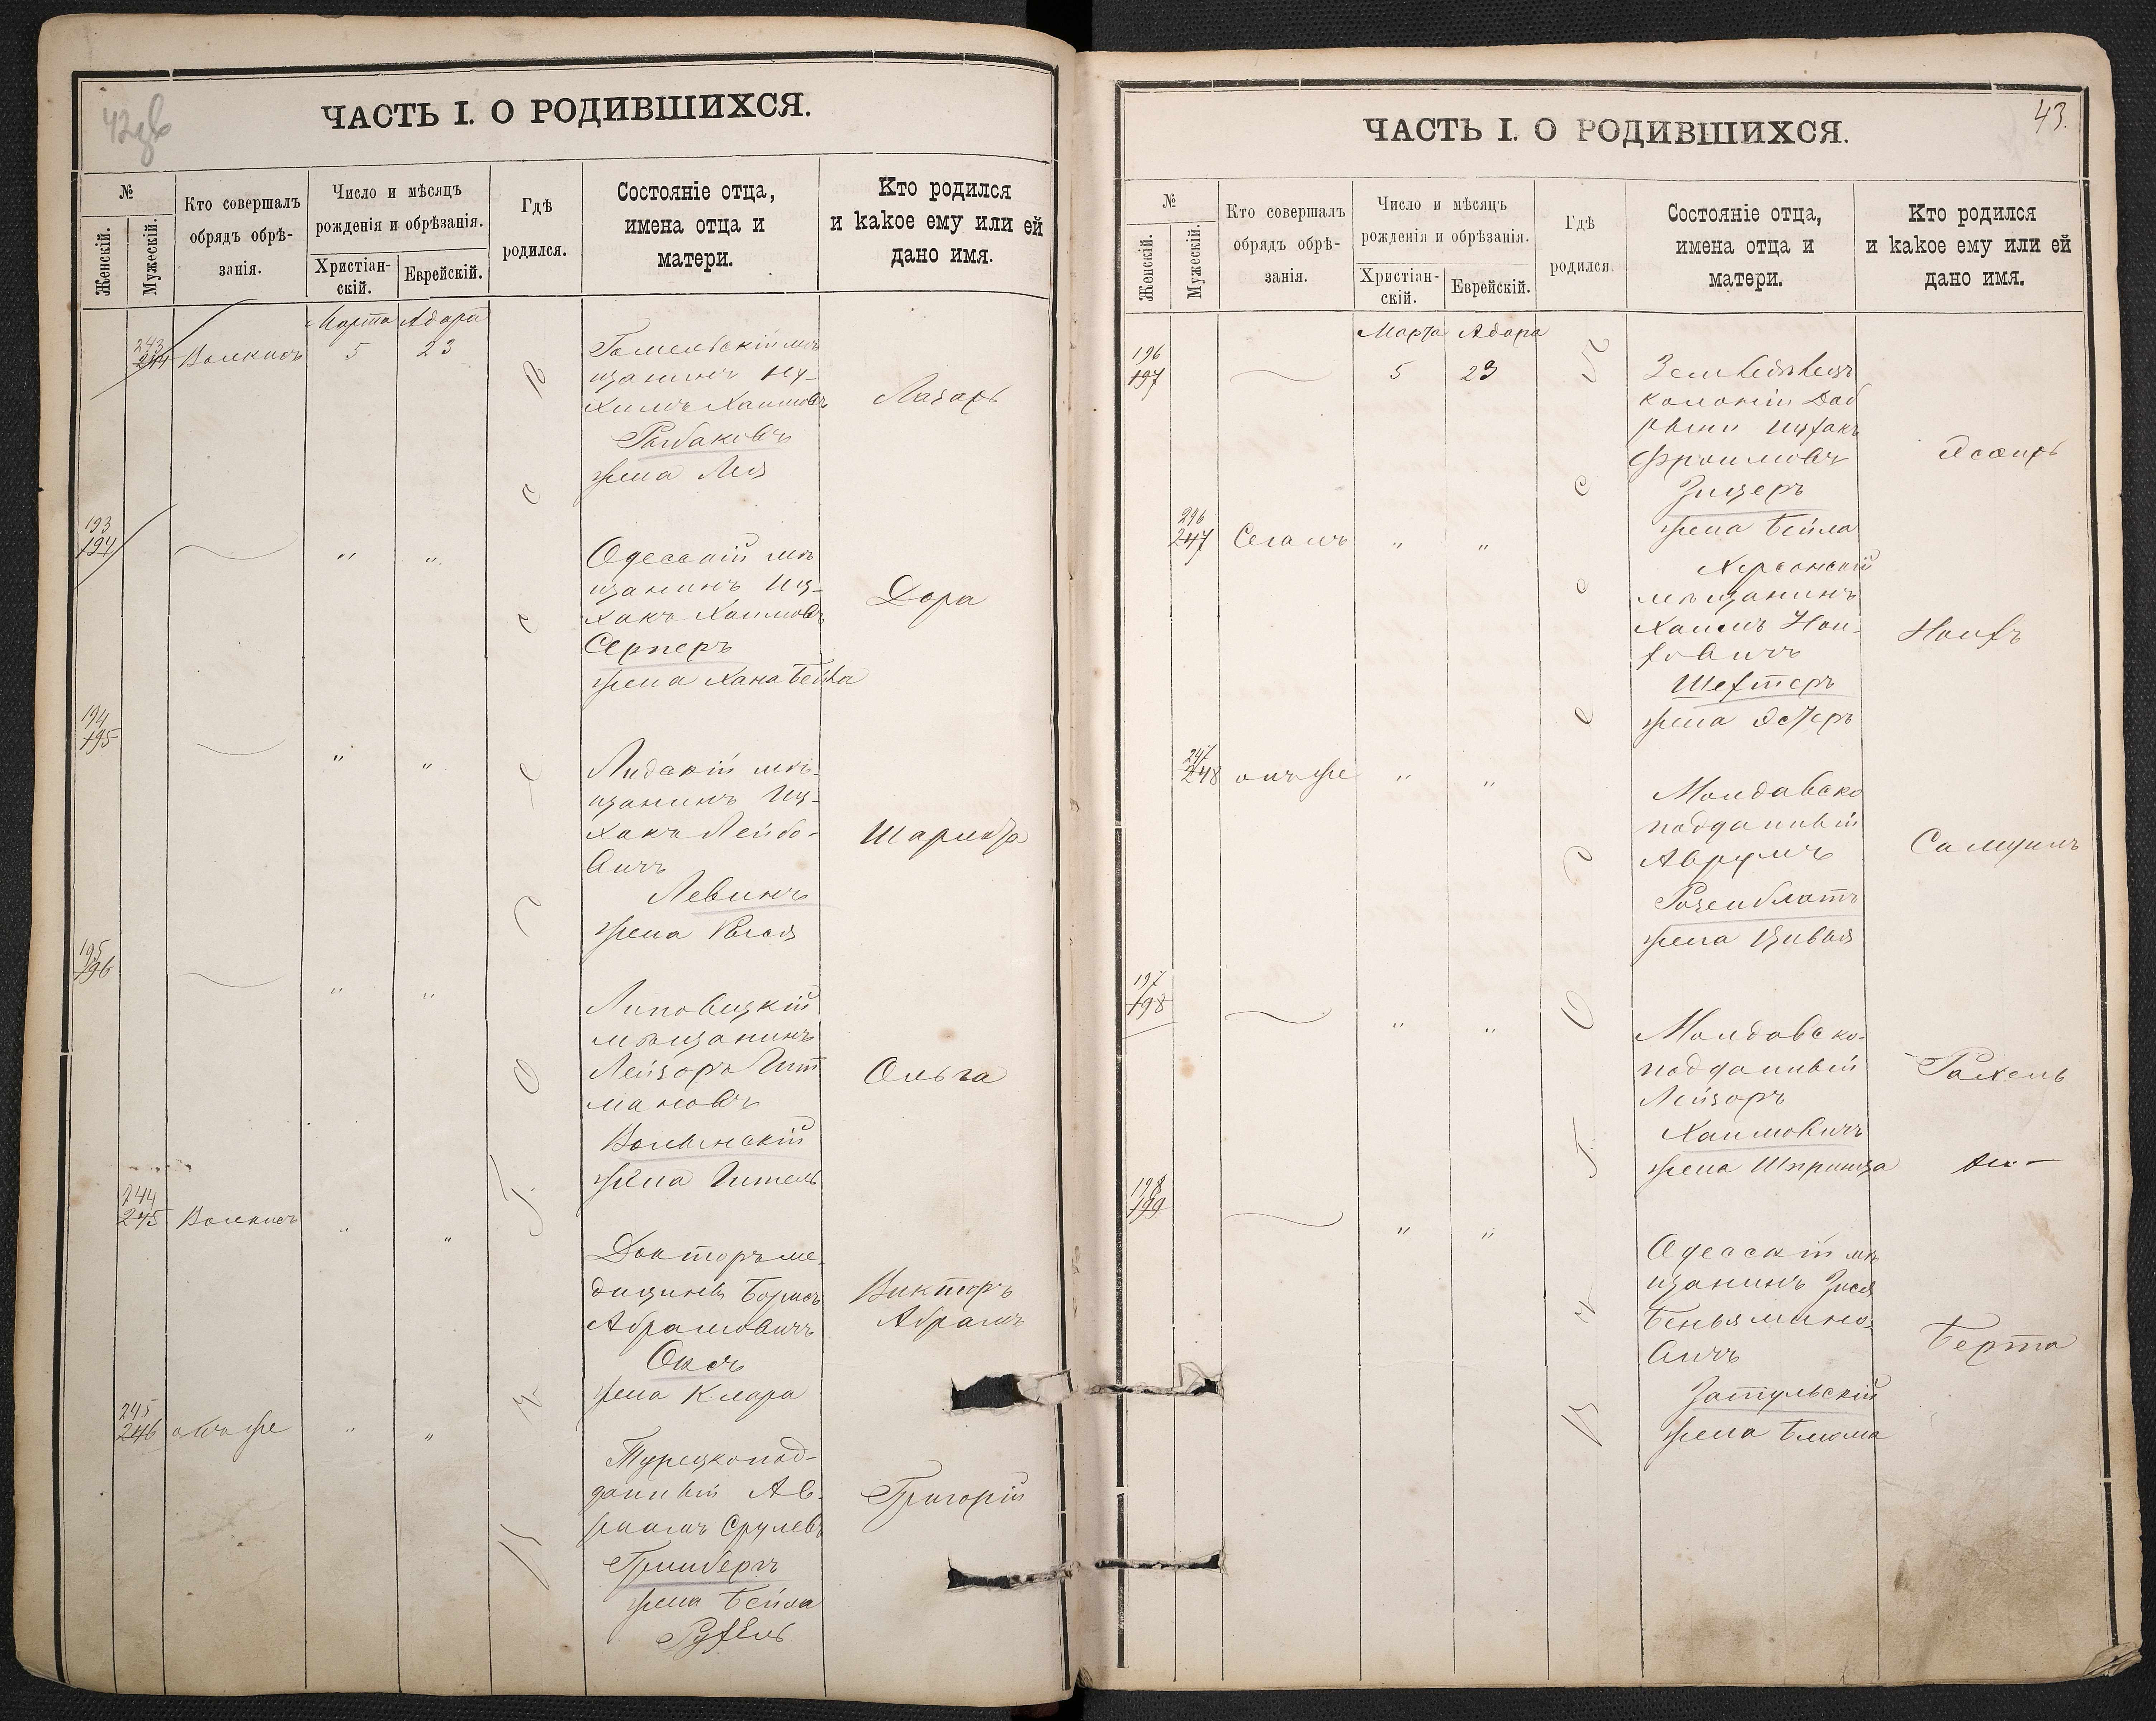 42 об
ЧАСТЬ I. О РОДИВШИХСЯ.
№
Женскій.
Мужескій.
Кто совершалъ
обрядъ обрѣ-
занія.
Число и мѣсяцъ
рожденія и обрѣзанія.
Христіан-
скій.
Еврейскій.
Гдѣ
родился.
Состояніе отца,
имена отца и
матери.
Кто родился
и какое ему или ей
дано имя.
Марта Адара
243
244 5 23
Гомельскій мѣ
щанинъ Ну-
химъ Хаимовъ
Рыбаковъ
жена Лея
Лазарь
193
194 " "
Одесскій мѣ
щанинъ Иц-
хакъ Хаимовъ
Серперъ
жена Хана Бейла
Дора
194
195 " "
Лидскій мѣ-
щанинъ Иц-
хакъ Лейбо-
вичъ
Левинъ
жена Рыся
Шарлота
195
196 " "
Липовецкій
мѣщанинъ
Лейзоръ Гит
мановъ
Волынскій
жена Гитель
Ольга
244
245 " "
Докторъ ме
дицины Борисъ
Абрамовичъ
Оксъ
жена Клара
Викторъ
Абрамъ
245
246 онъ же " "
Турецкопод-
данный Ав-
раамъ Срулевъ
Гринбергъ
жена Бейла
Рухель
Григорій
О д е с с
43.
ЧАСТЬ I. О РОДИВШИХСЯ.
№
Женскій.
Мужескій.
Кто совершалъ
обрядъ обрѣ-
занія.
Число и мѣсяцъ
рожденія и обрѣзанія.
Христіан-
скій.
Еврейскій.
Гдѣ
родился.
Состояніе отца,
имена отца и
матери.
Кто родился
и какое ему или ей
дано имя.
Марта Адара
196
197 5 23
Земледѣлецъ
колоніи Доб
рыни Ицхакъ
Фроимовъ
Зицеръ
жена Бейла
Эсѳирь
246
247 Сегалъ " "
Херсонскій
мѣщанинъ
Хаимъ Ноп-
ховичъ
Шехтеръ
жена Эстеръ
247
248 онъ же " "
Молдавско
подданный
Аврумъ
Розенблатъ
жена Цивья
Самуилъ
197
198 " "
Молдавско-
подданный
Лейзоръ
Хаимовичъ
жена Шпринца
Рахель
198
199 " "
Одесскій мѣ
щанинъ Зися
Беньямино-
вичъ
Затульскій
жена Блюма
Берта